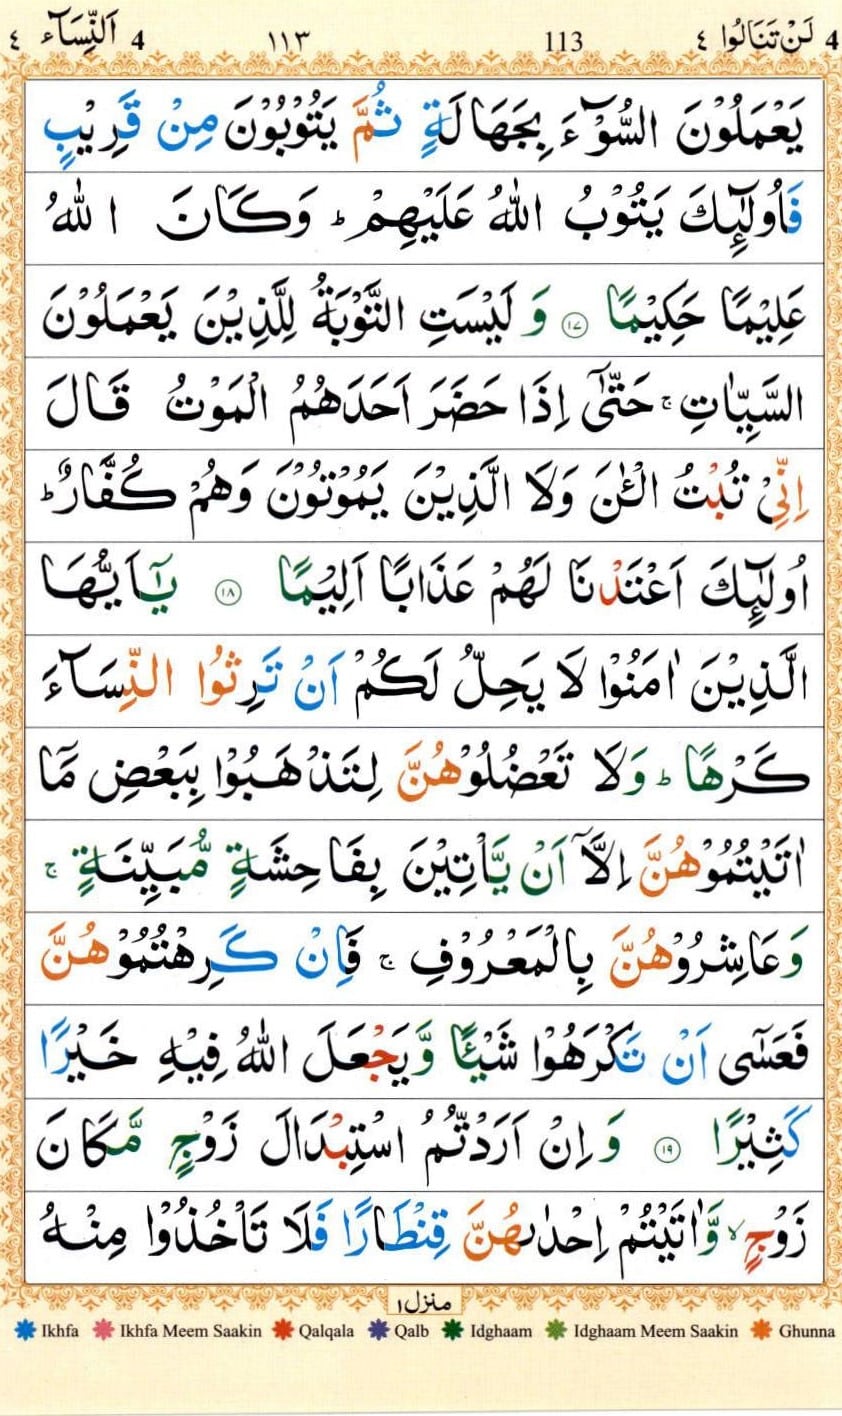 4 لَنْ تَنَالُوا ٤ 113 ١١٣ 4 اَلنِّسَآء ٤
يَعْمَلُوْنَ السُّوْٓءَ بِجَهَالَةٍ ثُمَّ يَتُوْبُوْنَ مِنْ قَرِيْبٍ
فَاُولٰٓئِكَ يَتُوْبُ اللّٰهُ عَلَيْهِمْ ؕ وَكَانَ اللّٰهُ
عَلِيْمًا حَكِيْمًا ١٧ وَلَيْسَتِ التَّوْبَةُ لِلَّذِيْنَ يَعْمَلُوْنَ
السَّيِّاٰتِ ۚ حَتّٰٓى اِذَا حَضَرَ اَحَدَهُمُ الْمَوْتُ قَالَ
اِنِّىْ تُبْتُ الْـٰٔنَ وَلَا الَّذِيْنَ يَمُوْتُوْنَ وَهُمْ كُفَّارٌ ؕ
اُولٰٓئِكَ اَعْتَدْنَا لَهُمْ عَذَابًا اَلِيْمًا ١٨ يٰٓاَيُّهَا
الَّذِيْنَ اٰمَنُوْا لَا يَحِلُّ لَكُمْ اَنْ تَرِثُوا النِّسَآءَ
كَرْهًا ؕ وَلَا تَعْضُلُوْهُنَّ لِتَذْهَبُوْا بِبَعْضِ مَآ
اٰتَيْتُمُوْهُنَّ اِلَّآ اَنْ يَّاْتِيْنَ بِفَاحِشَةٍ مُّبَيِّنَةٍ ۚ
وَعَاشِرُوْهُنَّ بِالْمَعْرُوْفِ ۚ فَاِنْ كَرِهْتُمُوْهُنَّ
فَعَسٰٓى اَنْ تَكْرَهُوْا شَيْـًٔا وَّيَجْعَلَ اللّٰهُ فِيْهِ خَيْرًا
كَثِيْرًا ١٩ وَاِنْ اَرَدْتُّمُ اسْتِبْدَالَ زَوْجٍ مَّكَانَ
زَوْجٍ ۙ وَّاٰتَيْتُمْ اِحْدٰىهُنَّ قِنْطَارًا فَلَا تَاْخُذُوْا مِنْهُ
منزل١
Ikhfa Ikhfa Meem Saakin Qalqala Qalb Idghaam Idghaam Meem Saakin Ghunna